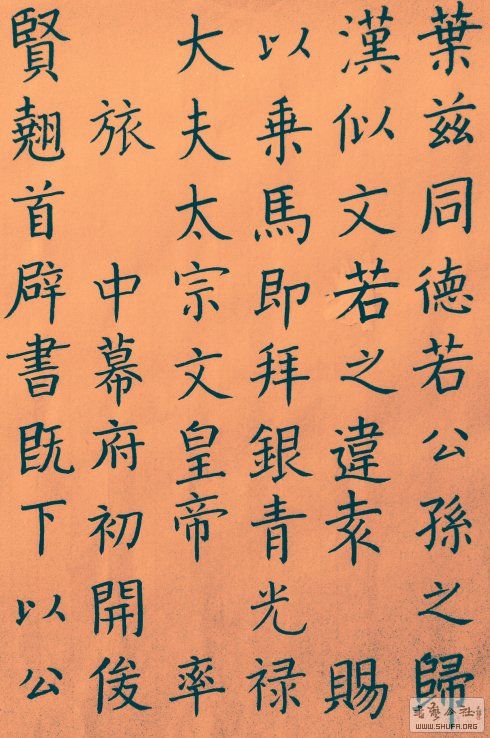 葉兹同徳若公孫之歸
漢似文若之違袁賜
以乗馬即拜銀青光禄
大夫太宗文皇帝率
旅中幕府初開俊
賢翹首辟書既下以公
WWW.SHUFA.ORG